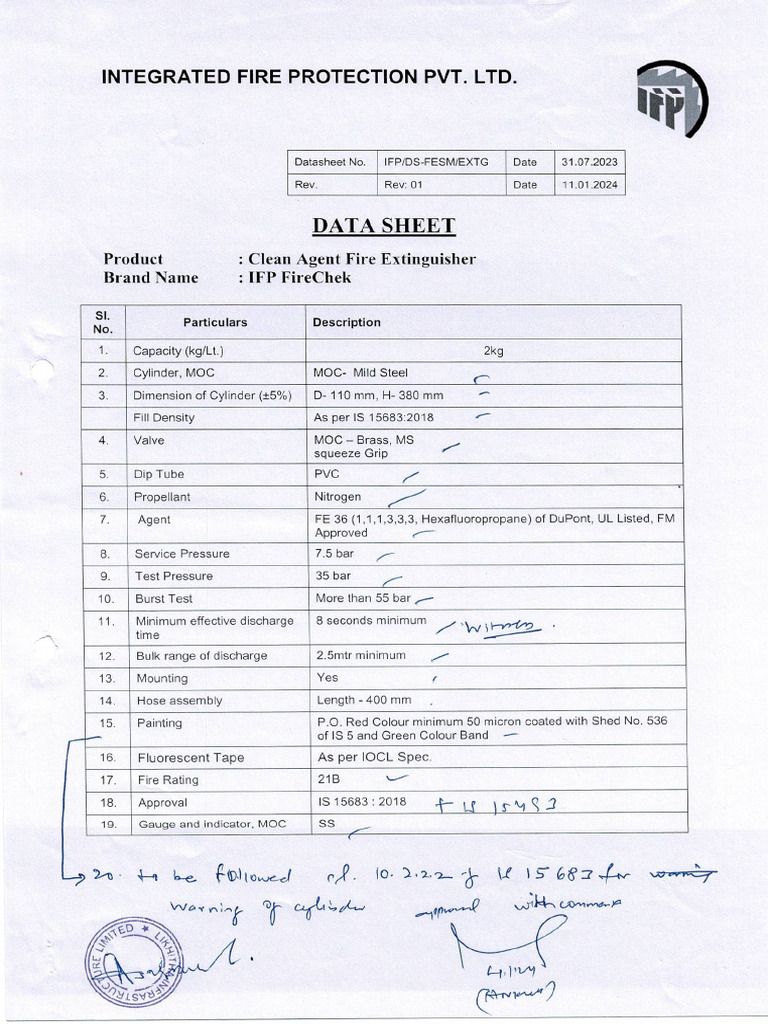 INTEGRATED FIRE PROTECTION PVT. LTD.
IFP
Datasheet No. IFP/DS-FESM/EXTG Date 31.07.2023
Rev. Rev: 01 Date 11.01.2024
DATA SHEET
Product : Clean Agent Fire Extinguisher
Brand Name : IFP FireChek
Sl. No. Particulars Description
1. Capacity (kg/Lt.) 2kg
2. Cylinder, MOC MOC- Mild Steel
3. Dimension of Cylinder (±5%) D- 110 mm, H- 380 mm
Fill Density As per IS 15683:2018
4. Valve MOC – Brass, MS
squeeze Grip
5. Dip Tube PVC
6. Propellant Nitrogen
7. Agent FE 36 (1,1,1,3,3,3, Hexafluoropropane) of DuPont, UL Listed, FM
Approved
8. Service Pressure 7.5 bar
9. Test Pressure 35 bar
10. Burst Test More than 55 bar
11. Minimum effective discharge time 8 seconds minimum
12. Bulk range of discharge 2.5mtr minimum
13. Mounting Yes
14. Hose assembly Length - 400 mm
15. Painting P.O. Red Colour minimum 50 micron coated with Shed No. 536
of IS 5 and Green Colour Band
16. Fluorescent Tape As per IOCL Spec.
17. Fire Rating 21B
18. Approval IS 15683 : 2018 + IS 15493
19. Gauge and indicator, MOC SS
20. to be followed cl. 10.2.2.2 of IS 15683 for
warning of cylinder approved with comment
LIKHITHA INFRASTRUCTURE LIMITED